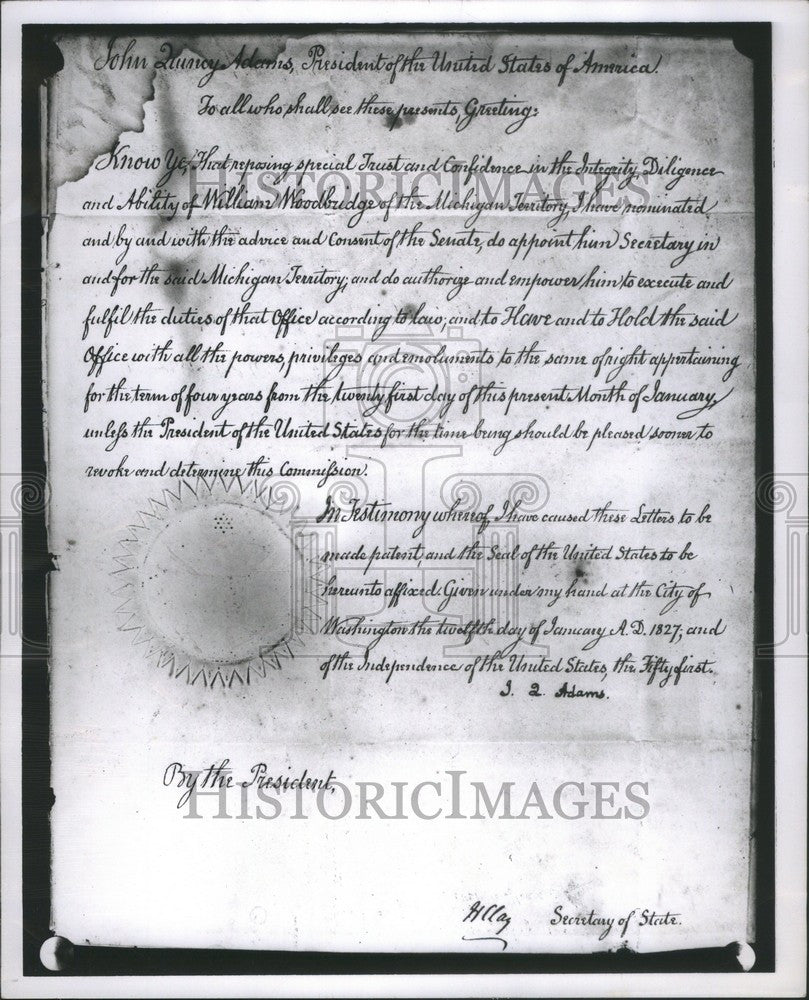 John Quincy Adams, President of the United States of America.
To all who shall see these presents, Greeting:
Know Ye, That reposing special Trust and Confidence in the Integrity, Diligence
and Ability of William Woodbridge of the Michigan Territory, I have nominated,
and by and with the advice and Consent of the Senate, do appoint him Secretary in
and for the said Michigan Territory; and do authorize and empower him to execute and
fulfil the duties of that Office according to law; and to Have and to Hold the said
Office with all the powers, privileges and emoluments to the same of right appertaining
for the term of four years from the twenty first day of this present Month of January,
unless the President of the United States for the time being should be pleased sooner to
revoke and determine this Commission.
In Testimony whereof, I have caused these Letters to be
made patent, and the Seal of the United States to be
hereunto affixed. Given under my hand at the City of
Washington the twelfth day of January A.D. 1827; and
of the Independence of the United States, the Fifty first.
J. Q. Adams.
By the President,
HISTORICIMAGES
HISTORICIMAGES
H Clay Secretary of State.